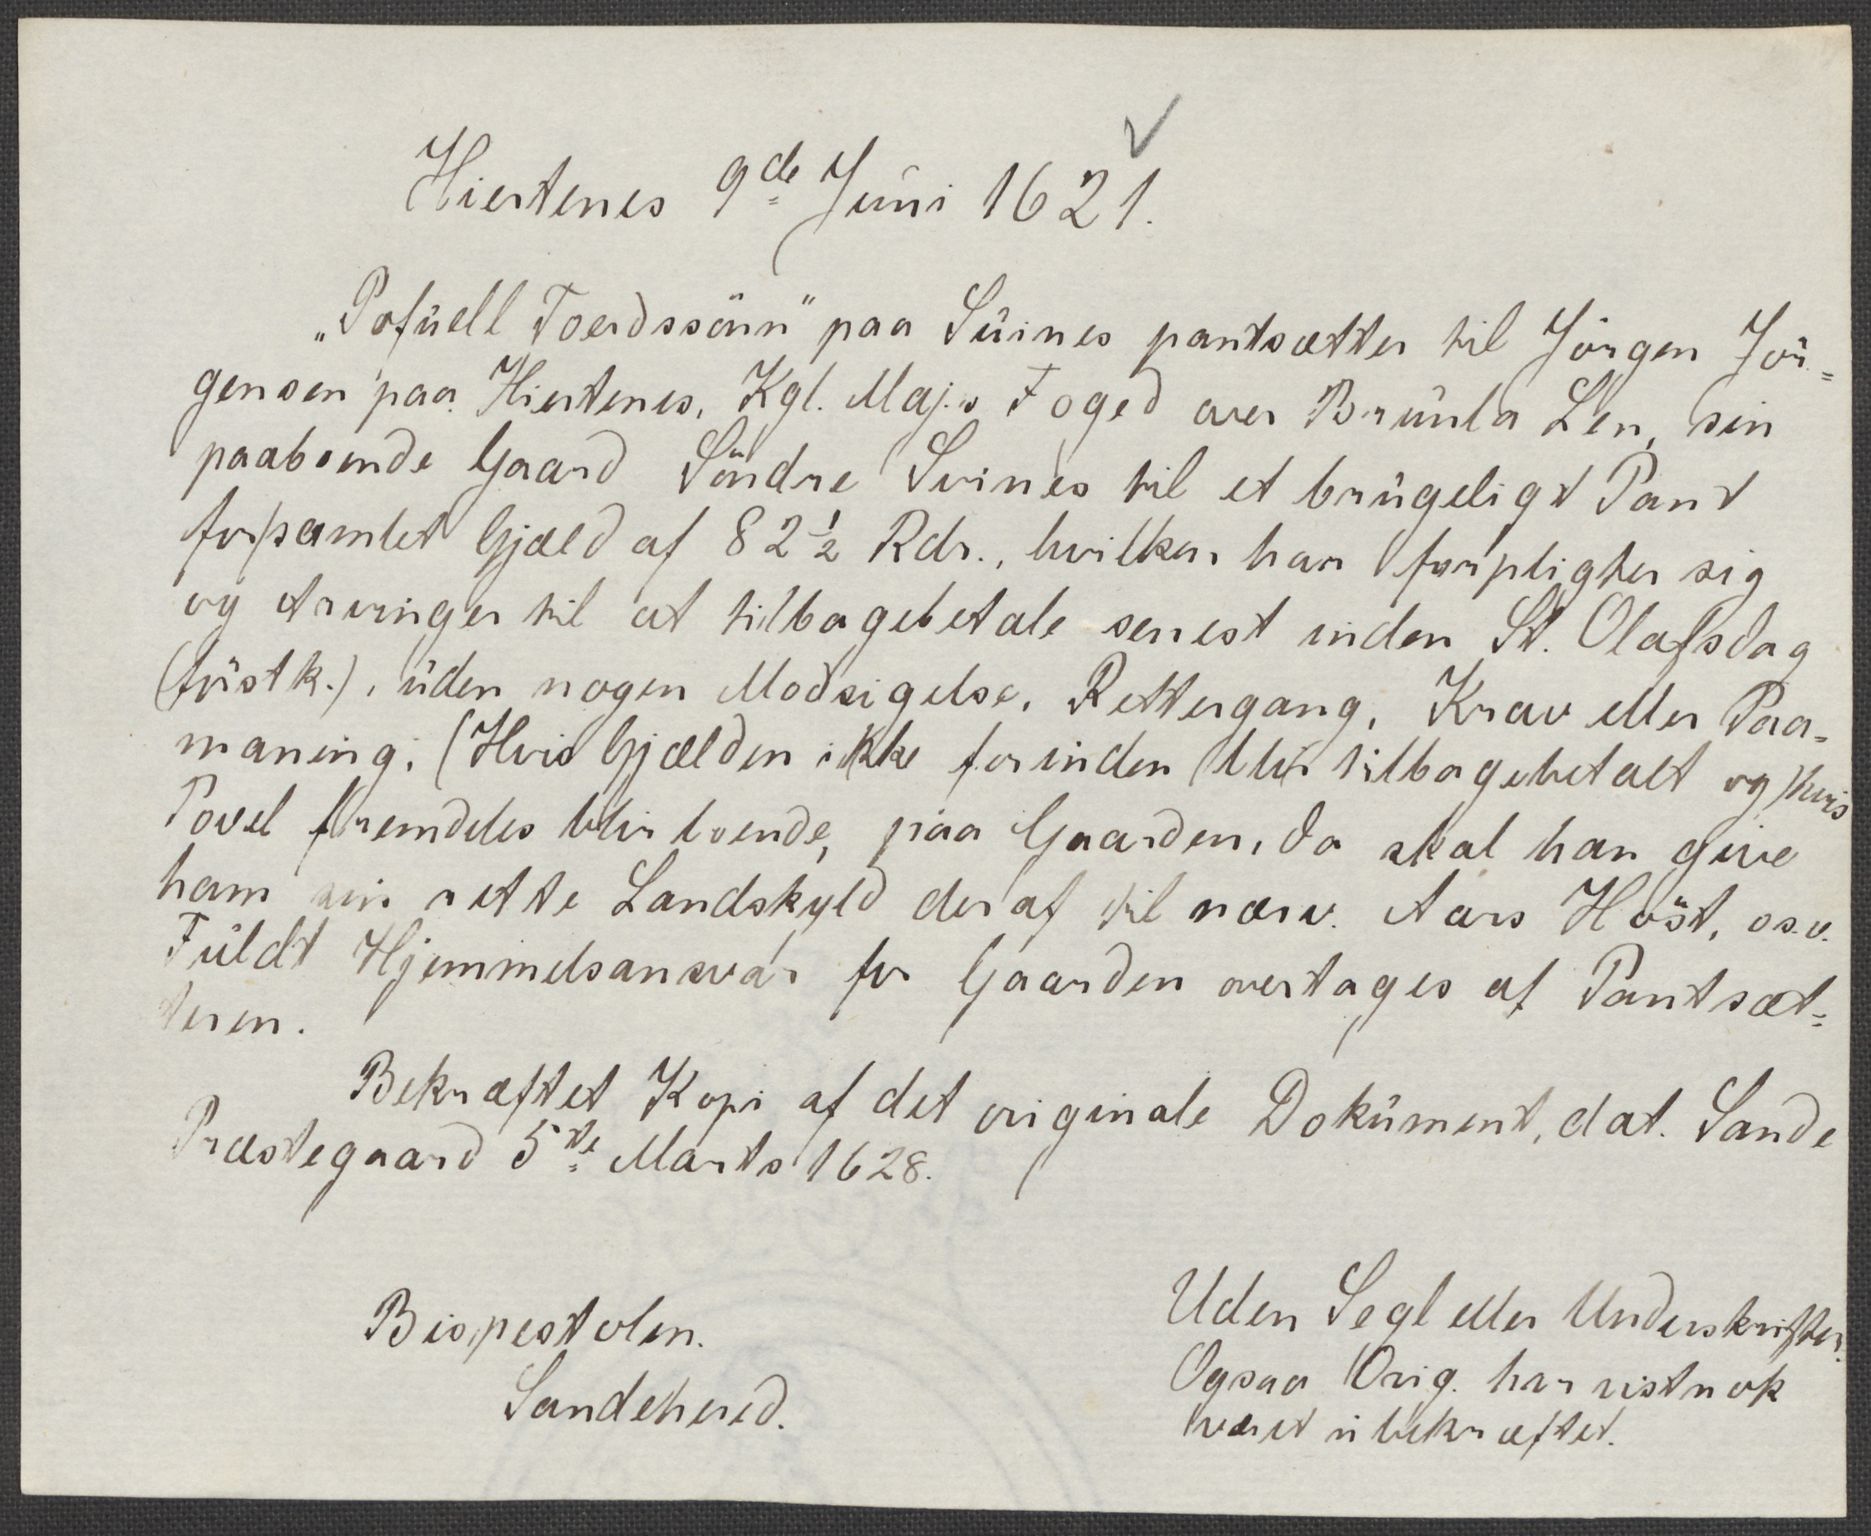 Hiertenes 9de Juni 1621.
„Pofuell Toerdssönn" paa Suines pantsætter til Jörgen Jör=
gensen paa Hiertenes, Kgl. Maj.s Foged over Brunla Len, sin
paaboende Gaard Söndre Svines til et brugeligt Pant
for samlet Gjæld af 82 1/2 Rdr., hvilken han forpligter sig
og Arvinger til at tilbagebetale senest inden St. Olafsdag
(förstk.), uden nogen Modsigelse, Rettergang, Krav eller Paa=
maning. (Hvis Gjælden ikke forinden blir tilbagebetalt og hvis
Povel fremdeles blir boende, paa Gaarden, da skal han give
ham sin rette Landskyld deraf til nærv. Aars Höst, o.s.v.
Fuldt Hjemmelsansvar for Gaarden overtages af Pantsæt=
teren.
Bekræftet Kopi af det originale Dokument, dat. Sande
Præstegaard 5te Marts 1628.
Bispestolen.
Sandeherred.
Uden Segl eller Underskrifter.
Ogsaa Orig. har vistnok
været ubekræftet.